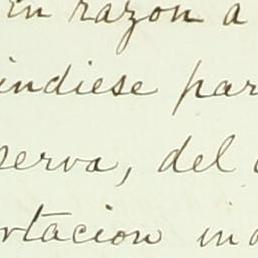 in razon a
indiese par
serva, del
rtacion ind